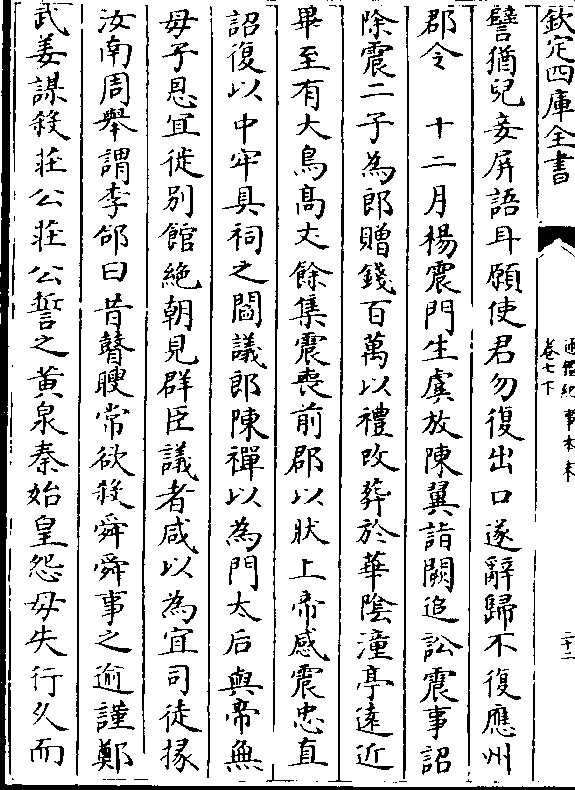 欽定四庫全書
通鑑紀事本末
卷七下
二十二
譬猶兒妾屏語耳願使君勿復出口遂辭歸不復應州
郡令　十二月楊震門生虞放陳翼詣闕追訟震事詔
除震二子為郎贈錢百萬以禮改葬於華隂潼亭逺近
畢至有大鳥髙丈餘集震喪前郡以狀上帝感震忠直
詔復以中牢具祠之閻議郎陳禪以為門太后與帝無
母子恩宜徙别館絶朝見群臣議者咸以為宜司徒掾
汝南周舉謂李郃曰昔瞽瞍常欲殺舜舜事之逾謹鄭
武姜謀殺莊公莊公誓之黄泉秦始皇怨母失行久而